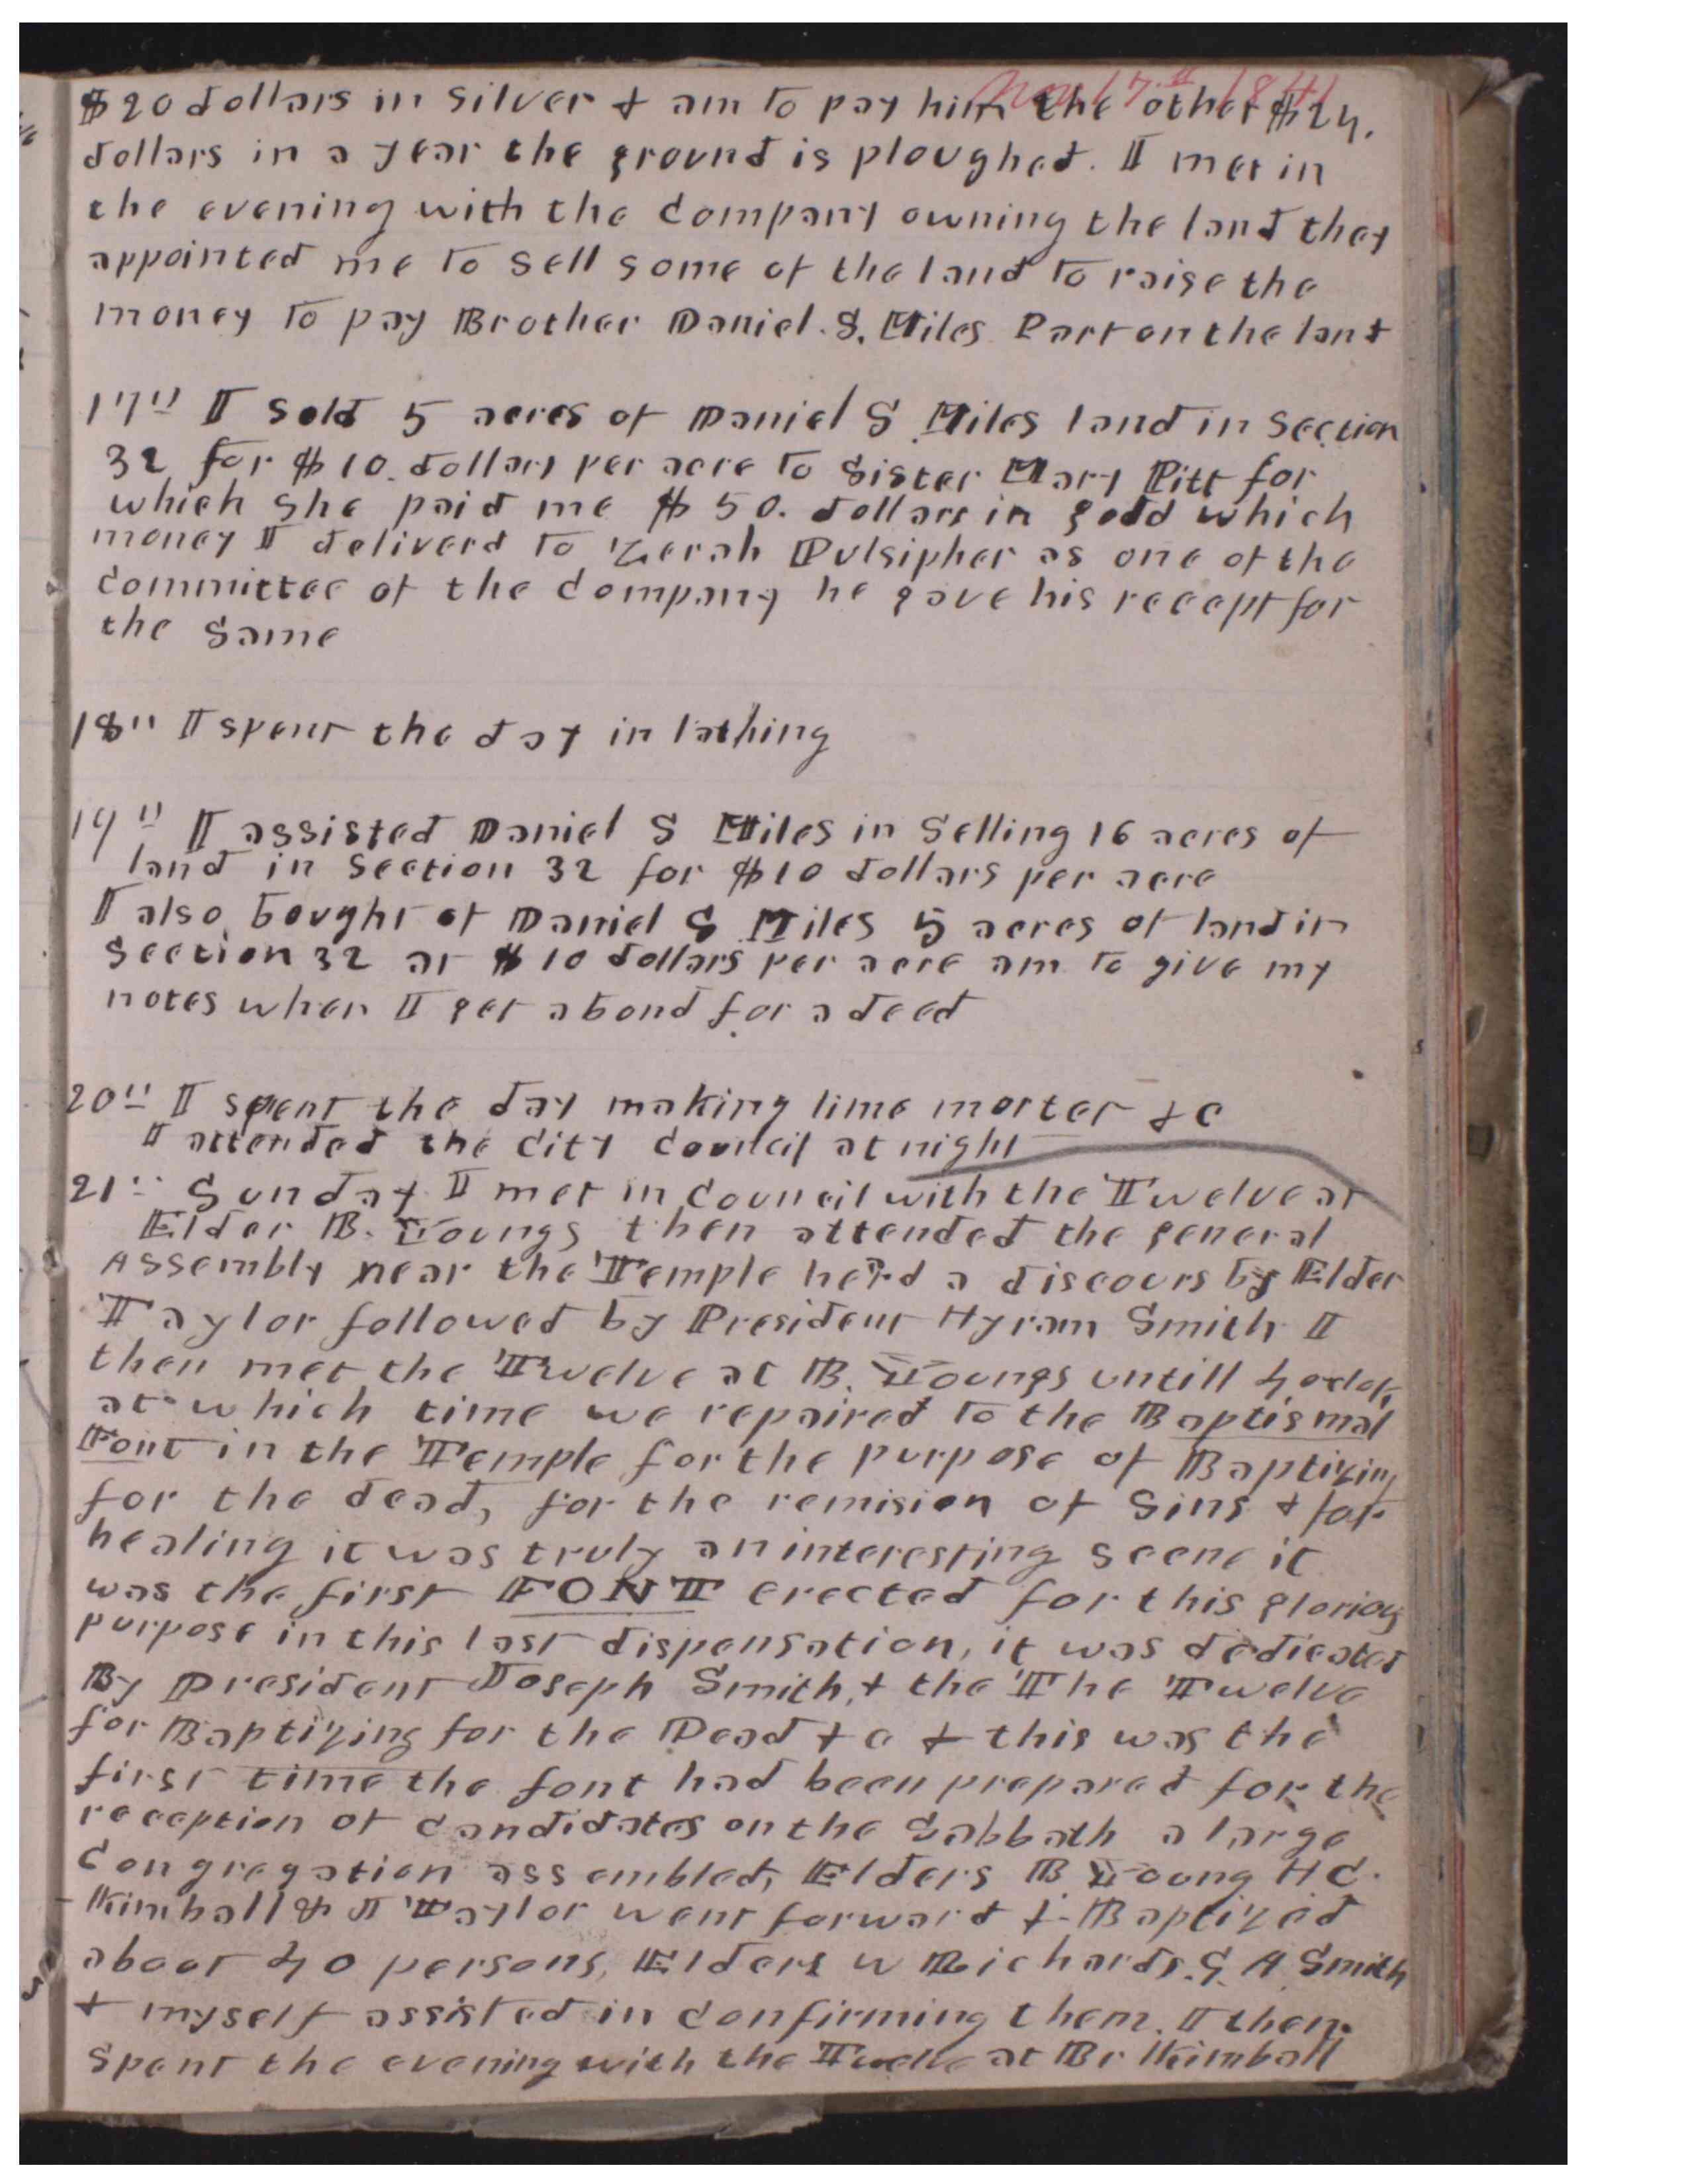 Nov 17th 1841
$20 dollars in silver & am to pay him the other $24.
dollars in a year the ground is ploughed. I met in
the evening with the Company owning the land they
appointed me to sell some of the land to raise the
money to pay Brother Daniel. S. Miles Part on the land
17th I sold 5 acres of Daniel S Miles land in Section
32 for $10. dollars per acre to Sister Mary Pitt for
which she paid me $50. dollars in gold which
money I deliverd to Zerah Pulsipher as one of the
committee of the Company he gave his recept for
the same
18" I spent the day in lathing
19th I assisted Daniel S Miles in Selling 16 acres of
land in Section 32 for $10 dollars per acre
I also bought of Daniel S Miles 5 acres of land in
Section 32 at $10 dollars per acre am to give my
notes when I get a bond for a deed
20th I spent the day making lime morter &c
I attended the City Council at night
21st Sunday I met in Council with the Twelve at
Elder B. Youngs then attended the general
Assembly near the Temple heard a discours by Elder
Taylor followed by President Hyram Smith I
then met the Twelve at B. Youngs untill 4 oclok,
at which time we repaired to the Baptismal
Font in the Temple for the purpose of Baptizing
for the dead, for the remision of Sins & for
healing it was truly an interesting scene it
was the first FONT erected for this glorious
purpose in this last dispensation, it was dedicated
By President Joseph Smith, & the The Twelve
for Baptizing for the Dead &c & this was the
first time the font had been prepared for the
reception of candidates on the Sabbath a large
Congregation assembled, Elders B Young H C.
Kimball & J Taylor went forward & Baptized
about 40 persons, Elders W Richards. G. A Smith
& myself assisted in confirming them. I then
spent the evening with the Twelve at Br Kimball